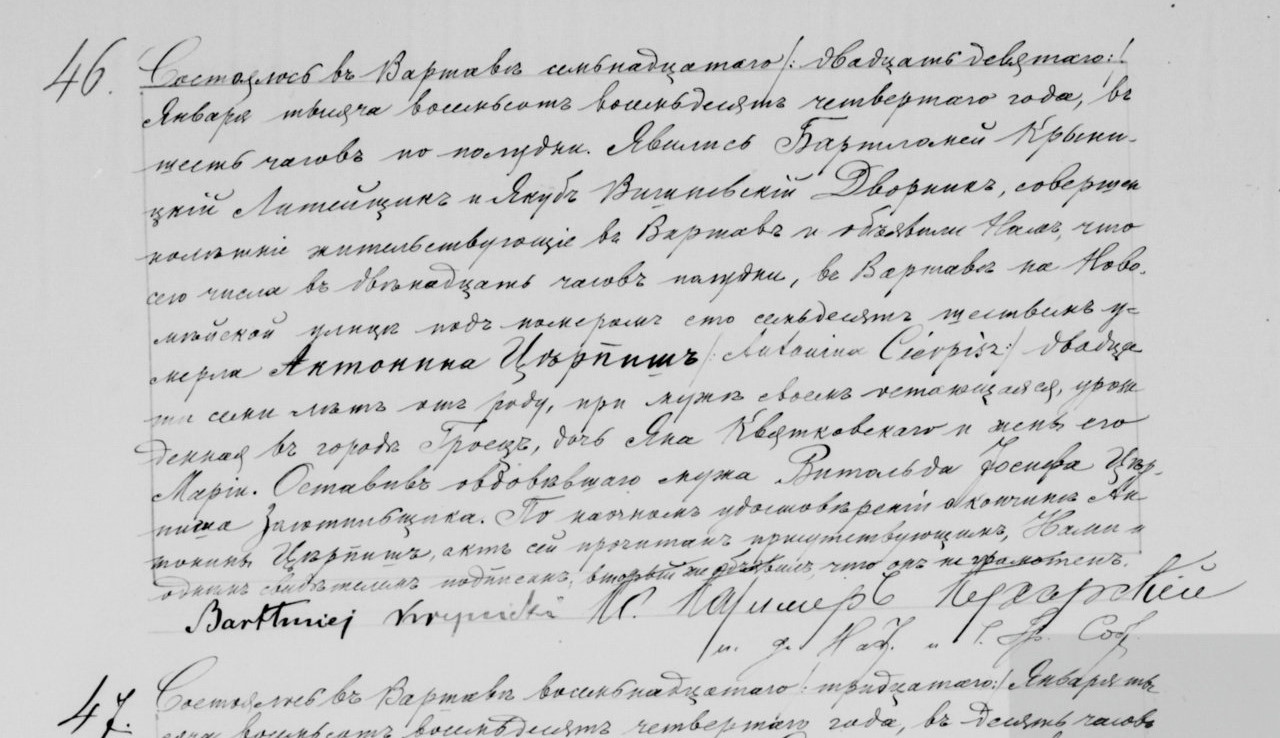 46. Состоялось въ Варшавѣ семьнадцатаго /: двадцать девятаго :/
Января тысяча восемьсотъ восемьдесятъ четвертаго года, въ
шесть часовъ по полудни. Явились Бартломей Крыни-
цкій Литейщикъ и Якубъ Дворникъ, совершен
нолѣтніе жительствующіе въ Варшавѣ и объявили Намъ, что
сего числа въ двѣнадцать часовъ полудни, въ Варшавѣ на Ново-
мѣйской улицѣ подъ номеромъ сто семьдесятъ шестымъ у-
мерла Антонина Цѣрпишъ /: Antonina Cierpisz :/ двадца
ти семи лѣтъ отъ роду, при мужѣ своемъ остающаяся, урож
денная въ городѣ Гроецъ, дочь Яна Квятковскаго и жены его
Маріи. Оставивъ овдовѣвшаго мужа Витольда Іосифа Цѣр-
пиша Золотильщика. По наочномъ удостовѣреніи о кончинѣ Ан
тонины Цѣрпишъ, актъ сей прочитанъ присутствующимъ, Нами и
однимъ свидѣтелемъ подписанъ, второй же объявилъ, что онъ не грамотенъ.
Bartłmiej Krynicki К.
и. д. и Г. Гр. Сос.
47. Состоялось въ Варшавѣ восемьнадцатаго /: тридцатаго :/ Января ты
сяча восемьсотъ восемьдесятъ четвертаго года, въ десять часовъ